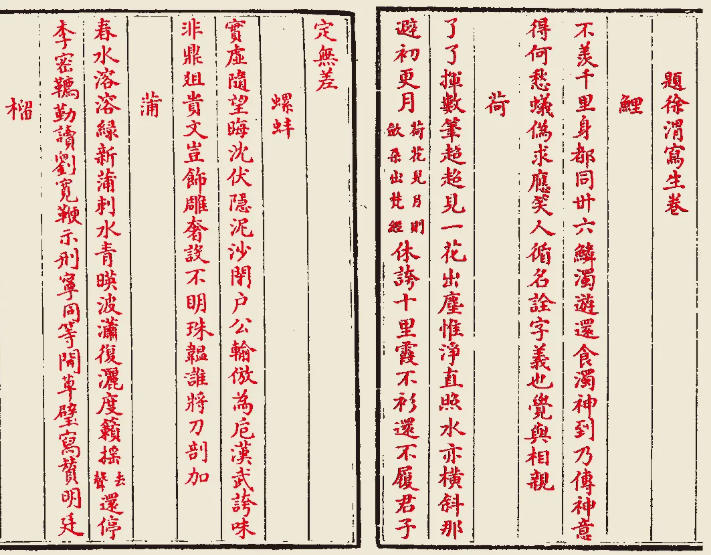 題徐渭寫生卷
鯉
不羨千里身都同卅六鱗濁遊還食濁神到乃傳神意
得何愁蟻偽求應笑人循名詮字義也覺與相親
荷
了了揮數筆超超見一花出塵惟淨直照水亦橫斜那
避初更月荷花見月則斂朵出梵經休誇十里霞不衫還不履君子
定無差
螺蚌
實虛隨望晦沈伏隱泥沙閉户公輸倣為卮漢武誇味
非鼎俎貴文豈飾雕奢設不明珠韞誰將刀剖加
蒲
春水溶溶緑新蒲刺水青暎波瀟復灑度籟揺去聲還停
李密韉勤讀劉寬鞭示刑寧同等閒草壁寫贊明廷
榴